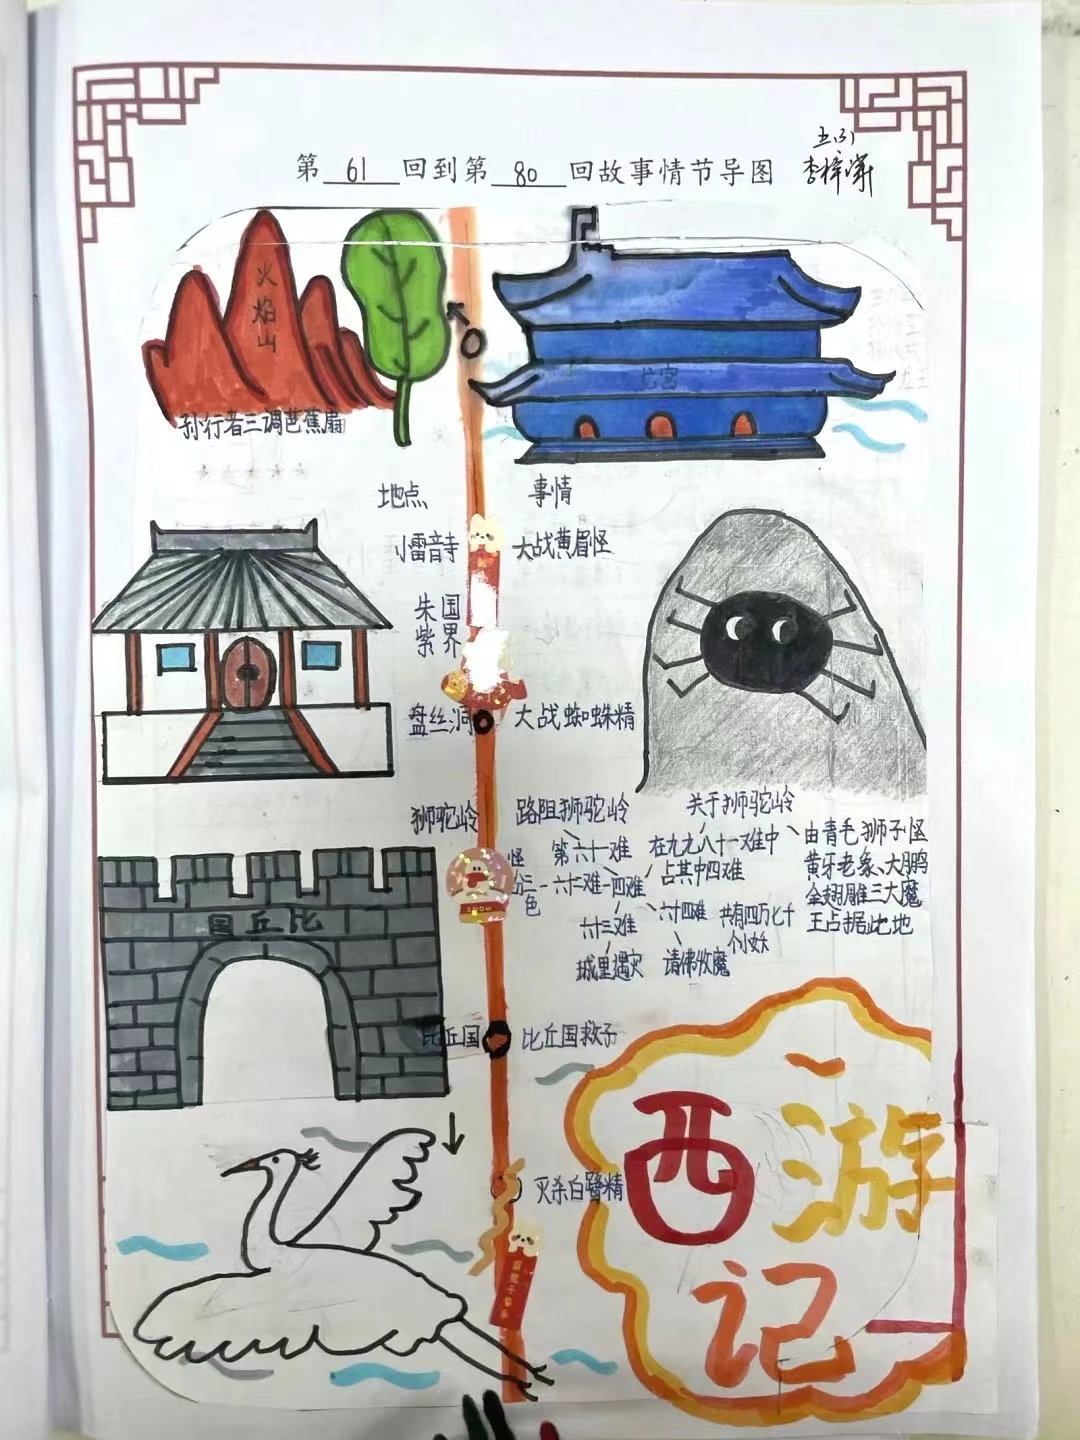 五(3)
第61回到第80回故事情节导图
火焰山
孙行者三调芭蕉扇
龙宫
地点
事情
小雷音寺
大战黄眉怪
朱国
紫界
盘丝洞
大战蜘蛛精
狮驼岭
路阻狮驼岭
第六十一难
怪分三色
六十二难
四难
六十三难
城里遇灾
六十四难
请佛收魔
关于狮驼岭
在九九八十一难中
占其中四难
共有四万七千
个小妖
由青毛狮子怪
黄牙老象、大鹏
金翅雕三大魔
王占据此地
国丘比
比丘国
比丘国救子
灭杀白鹭精
SNOW
西游
记